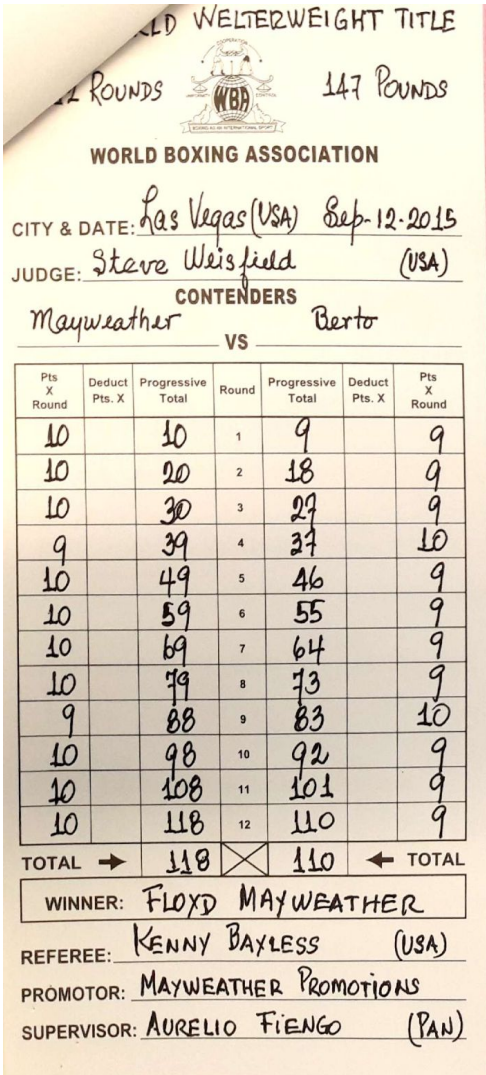 WELTERWEIGHT TITLE
ROUNDS WBA 147 POUNDS
WORLD BOXING ASSOCIATION
CITY & DATE: Las Vegas (USA) Sep-12-2015
JUDGE: Steve Weisfield (USA)
CONTENDERS
Mayweather VS Berto
Pts X Round Deduct Pts. X Progressive Total Round Progressive Total Deduct Pts. X Pts X Round
10 10 1 9 9
10 20 2 18 9
10 30 3 27 9
9 39 4 37 10
10 49 5 46 9
10 59 6 55 9
10 69 7 64 9
10 79 8 73 9
9 88 9 83 10
10 98 10 92 9
10 108 11 101 9
10 118 12 110 9
TOTAL 118 110 TOTAL
WINNER: FLOYD MAYWEATHER
REFEREE: KENNY BAYLESS (USA)
PROMOTOR: MAYWEATHER PROMOTIONS
SUPERVISOR: AURELIO FIENGO (PAN)